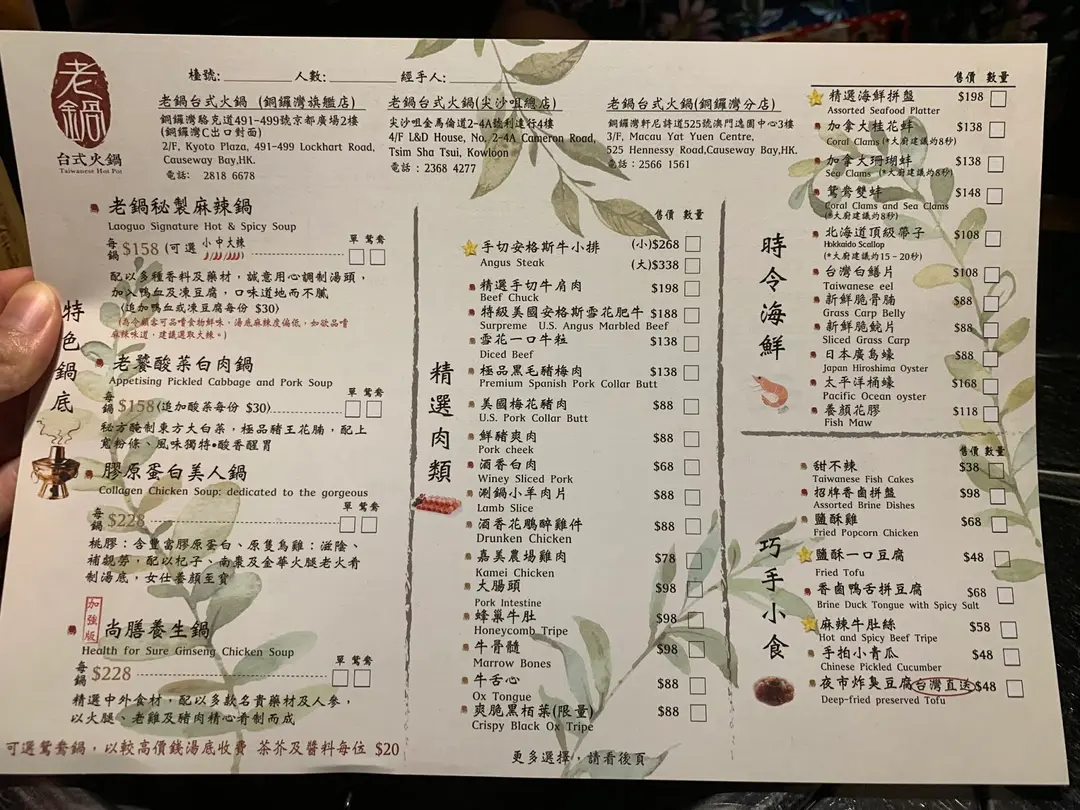 老鍋
台式火鍋
Taiwanese Hot Pot
檯號:
人數:
經手人:
老鍋台式火鍋 (銅鑼灣旗艦店)
銅鑼灣駱克道491-499號京都廣場2樓
(銅鑼灣C出口對面)
2/F, Kyoto Plaza, 491-499 Lockhart Road,
Causeway Bay,HK.
電話: 2818 6678
老鍋台式火鍋(尖沙咀總店)
尖沙咀金馬倫道2-4A號利達行4樓
4/F L&D House, No. 2-4A Cameron Road,
Tsim Sha Tsui, Kowloon
電話：2368 4277
老鍋台式火鍋(銅鑼灣分店)
銅鑼灣軒尼詩道525號澳門逸園中心3樓
3/F, Macau Yat Yuen Centre,
525 Hennessy Road,Causeway Bay,HK.
電話：2566 1561
特色鍋底
老鍋秘製麻辣鍋
Laoguo Signature Hot & Spicy Soup
單 鴛鴦
每鍋 $158 (可選 小中大辣
配以多種香料及藥材，誠意用心調制湯頭，
加入鴨血及凍豆腐，口味道地而不膩
(追加鴨血或凍豆腐每份 $30)
(為令顧客可品嚐食物鮮味，湯底麻辣度偏低，如欲品嚐
麻辣味道，建議選取大辣。)
老饕酸菜白肉鍋
Appetising Pickled Cabbage and Pork Soup
單 鴛鴦
每鍋 $158(追加酸菜每份 $30)
秘方醃制東方大白菜，極品豬王花腩，配上
寬粉條、風味獨特•酸香醒胃
膠原蛋白美人鍋
Collagen Chicken Soup: dedicated to the gorgeous
單 鴛鴦
每鍋 $228
桃膠：含豐富膠原蛋白、原隻烏雞：滋陰、
補虧勞，配以杞子、南棗及金華火腿老火肴
制湯底，女仕養顏至寶
加強版
尚膳養生鍋
Health for Sure Ginseng Chicken Soup
單 鴛鴦
每鍋 $228
精選中外食材，配以多款名貴藥材及人參，
以火腿、老雞及豬肉精心肴制而成
可選鴛鴦鍋，以較高價錢湯底收費 茶芥及醬料每位 $20
精選肉類
售價 數量
手切安格斯牛小排 (小)$268
Angus Steak (大)$338
精選手切牛肩肉 $198
Beef Chuck
特級美國安格斯雪花肥牛 $188
Surpreme U.S. Angus Marbled Beef
雪花一口牛粒 $138
Diced Beef
極品黑毛豬梅肉 $138
Premium Spanish Pork Collar Butt
美國梅花豬肉 $88
U.S. Pork Collar Butt
鮮豬爽肉 $88
Pork cheek
酒香白肉 $68
Winey Sliced Pork
涮鍋小羊肉片 $88
Lamb Slice
酒香花鵰醉雞件 $88
Drunken Chicken
嘉美農場雞肉 $78
Kamei Chicken
大腸頭 $98
Pork Intestine
蜂巢牛肚 $98
Honeycomb Tripe
牛骨髓 $98
Marrow Bones
牛舌心 $88
Ox Tongue
爽脆黑栢葉(限量) $88
Crispy Black Ox Tripe
更多選擇，請看後頁
時令海鮮
售價 數量
精選海鮮拼盤 $198
Assorted Seafood Platter
加拿大桂花蚌 $138
Coral Clams (*大廚建議灼8秒)
加拿大珊瑚蚌 $138
Sea Clams (*大廚建議灼8秒)
鴛鴦雙蚌 $148
Coral Clams and Sea Clams
(*大廚建議灼8秒)
北海道頂級帶子 $108
Hokkaido Scallop
(*大廚建議灼15－20秒)
台灣白鱔片 $108
Taiwanese eel
新鮮脆骨腩 $88
Grass Carp Belly
新鮮脆鯇片 $88
Sliced Grass Carp
日本廣島蠔 $88
Japan Hiroshima Oyster
太平洋桶蠔 $168
Pacific Ocean oyster
養顏花膠 $118
Fish Maw
巧手小食
售價 數量
甜不辣 $38
Taiwanese Fish Cakes
招牌香鹵拼盤 $98
Assorted Brine Dishes
鹽酥雞 $68
Fried Popcorn Chicken
鹽酥一口豆腐 $48
Fried Tofu
香鹵鴨舌拼豆腐 $68
Brine Duck Tongue with Spicy Salt
麻辣牛肚絲 $58
Hot and Spicy Beef Tripe
手拍小青瓜 $48
Chinese Pickled Cucumber
夜市炸臭豆腐 台灣直送 $48
Deep-fried preserved Tofu